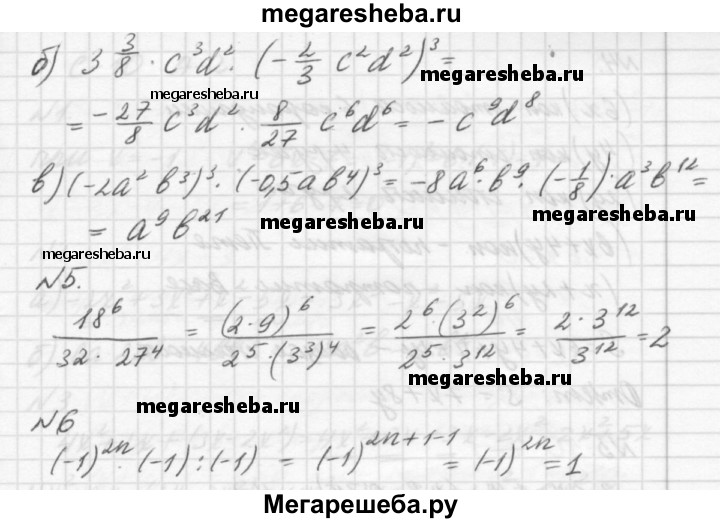 megaresheba.ru
б) 3 3/8 · c³d² · (-2/3 c²d²)³ =
megaresheba.ru
megaresheba.ru
= -27/8 c³d² · 8/27 c⁶d⁶ = - c⁹d⁸
в) (-2a² b³)³ · (-0,5ab⁴)³ = -8a⁶ · b⁹ · (-1/8) · a³b¹² =
megaresheba.ru
megaresheba.ru
= a⁹b²¹
megaresheba.ru
№5.
18⁶ / 32 · 27⁴ = (2·9)⁶ / 2⁵ · (3³)⁴ = 2⁶ · (3²)⁶ / 2⁵ · 3¹² = 2 · 3¹² / 3¹² = 2
megaresheba.ru
megaresheba.ru
№6
(-1)²ⁿ · (-1) : (-1) = (-1)²ⁿ⁺¹⁻¹ = (-1)²ⁿ = 1
Мегарешеба.ру